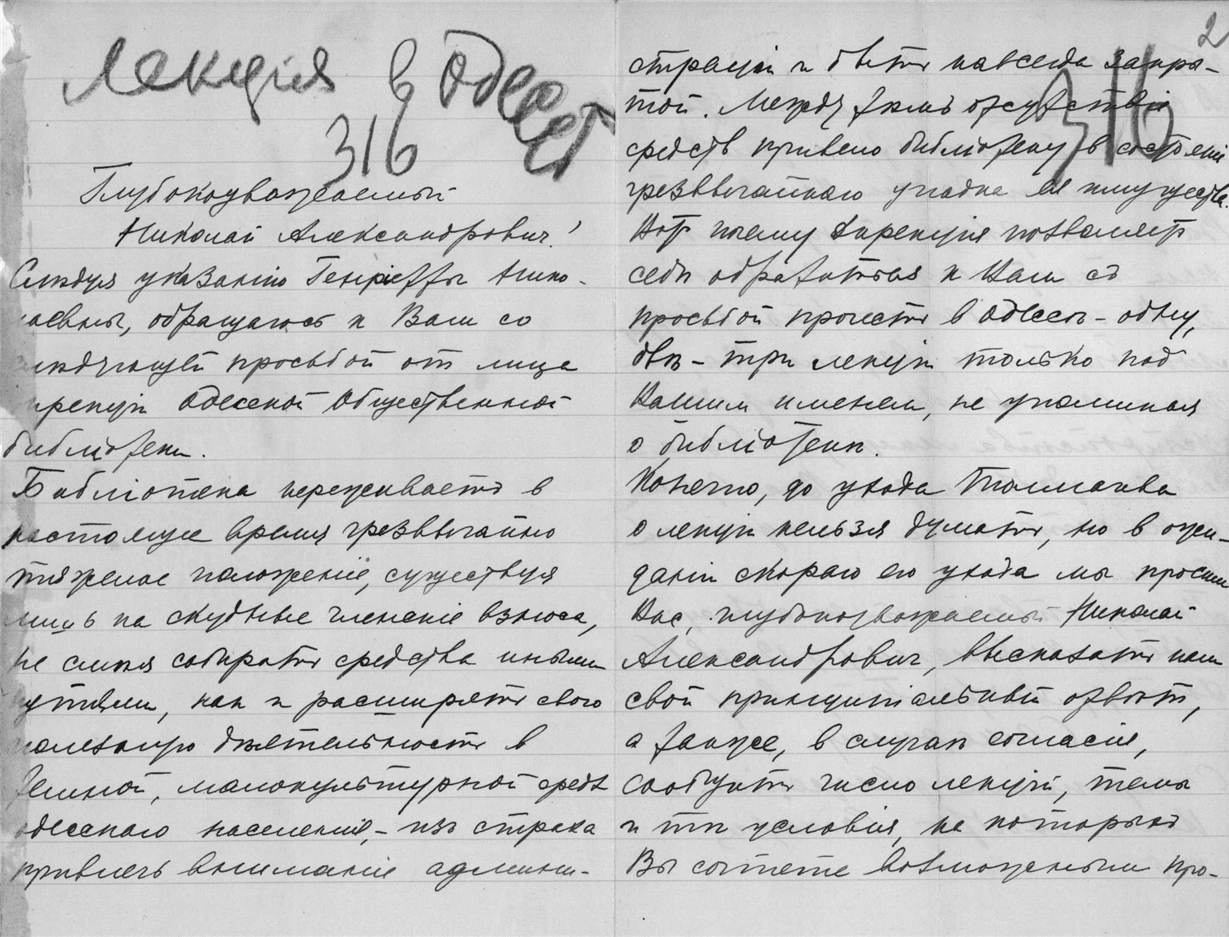 Лекция в Одессе
316
Глубокоуважаемый
Николай Александрович!
Следуя указанію Генріетты Нико-
лаевны, обращаюсь к Вам со
следующей просьбой от лица
дирекціи Одесской Общественной
библіотеки.
Библіотека переживаетъ в
настоящее время чрезвычайно
тяжелое положеніе, существуя
лишь на скудные членскіе взносы,
не смѣя собирать средства иными
путями, как и расширять свою
полезную дѣятельность в
темной, малокультурной средѣ
одесскаго населенія, – изъ страха
привлечь вниманіе админи-
2
страціи и быть навсегда закры-
той. Между тѣмъ отсутствіе
316
средств привело библіотеку в состояніе
чрезвычайнаго упадка ея имущества.
Вот почему дирекція позволяет
себѣ обратиться к Вам съ
просьбой прочесть в Одессѣ – одну,
двѣ – три лекціи только под
Вашим именем, не упоминая
о библіотекѣ.
Конечно, до ухода Толмачева
о лекціи нельзя думать, но в ожи-
даніи скораго его ухода мы просим
Вас, глубокоуважаемый Николай
Александрович, высказать нам
свой принципіальный отвѣт,
а также, в случаѣ согласія,
сообщить число лекцій, темы
и тѣ условія, на которых
Вы сочтете возможным про-